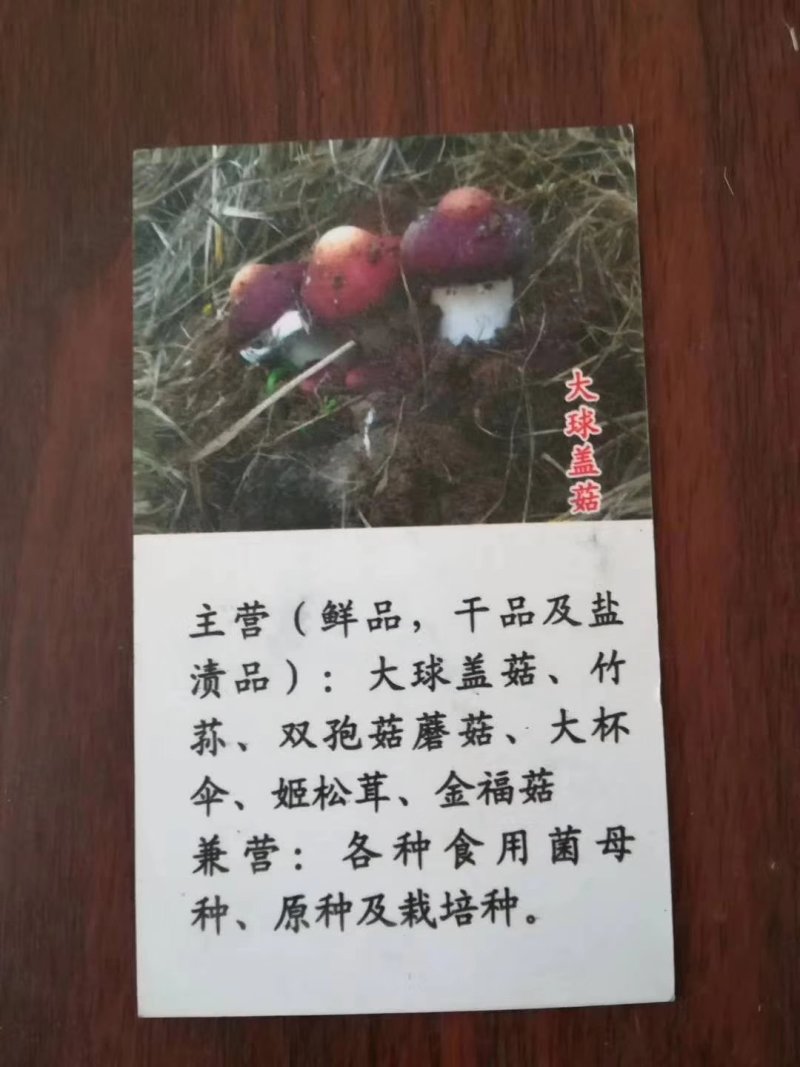 大球盖菇
主营（鲜品，干品及盐
渍品）：大球盖菇、竹
荪、双孢菇蘑菇、大杯
伞、姬松茸、金福菇
兼营：各种食用菌母
种、原种及栽培种。